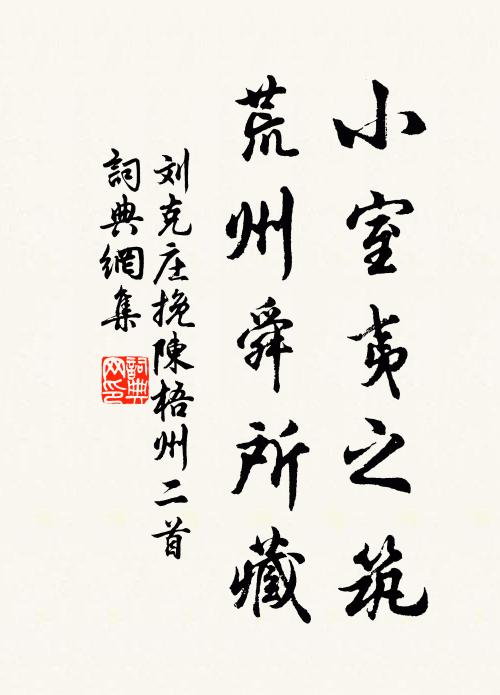 小室夷之筑
荒州舜所藏
刘克庄挽陳梧州二首
詞典網集
詞典网印